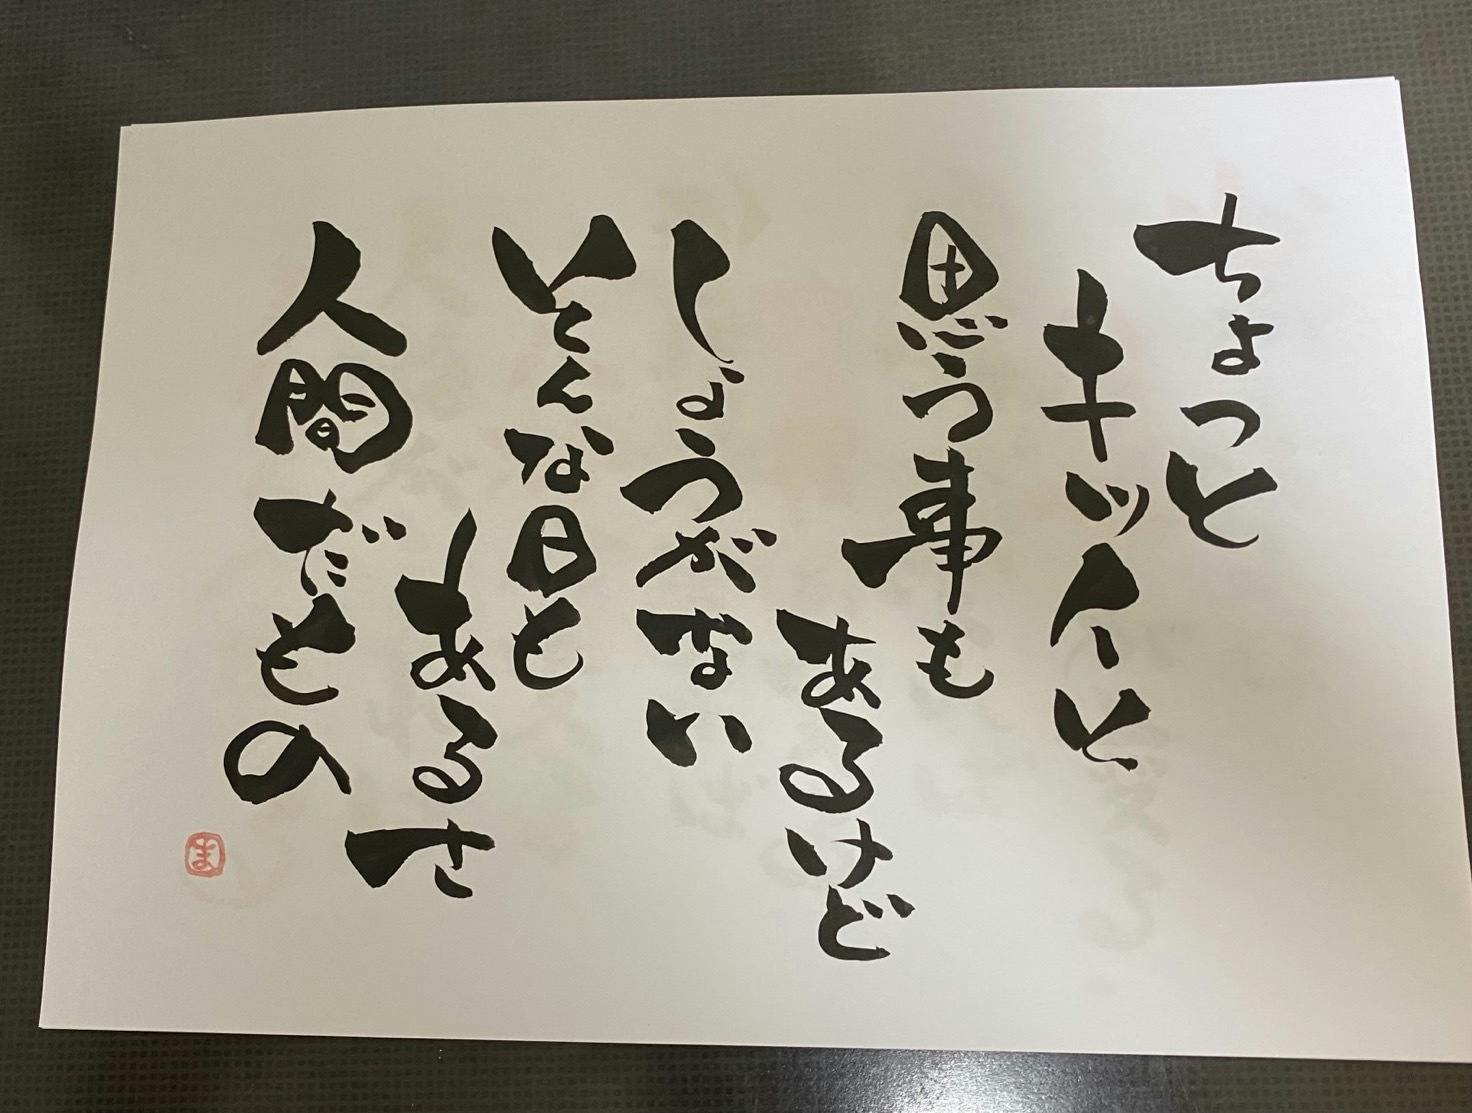 ちょっと
キツイと
思う事も
あるけど
しょうがない
そんな日も
あるさ
人間だもの
ま